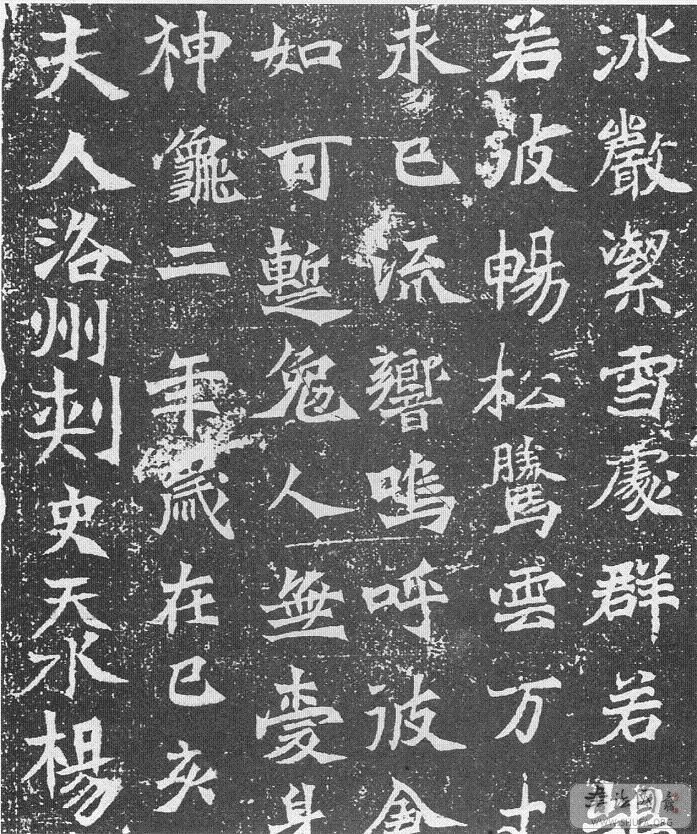 氷嚴潔雪處群若
若暢松騰雲万
永已流響嗚呼彼
如可蹔免人無身
神龜二年歲在己亥
夫人洛州刺史天水楊